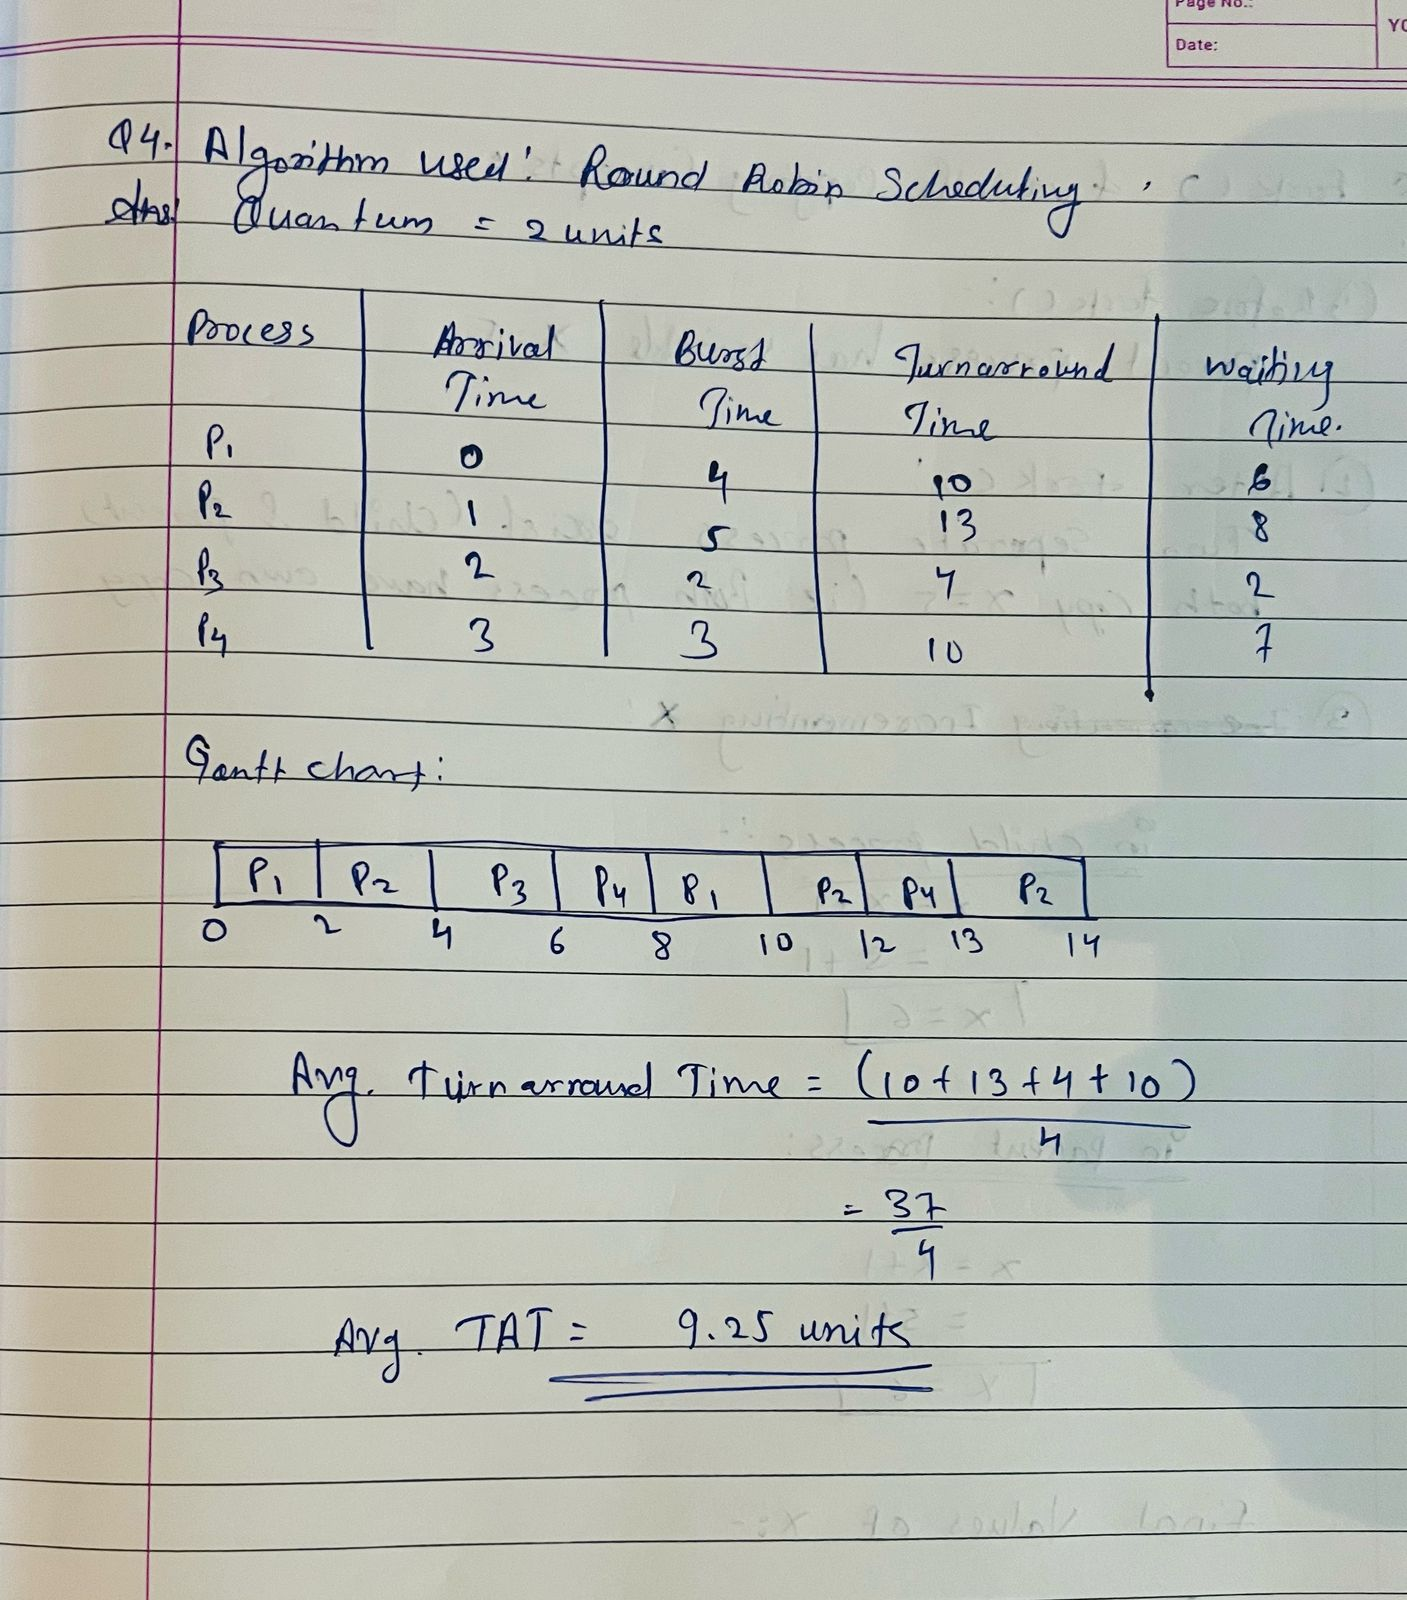 Page No.:
Date:
YO
Q4. Algorithm used: Round Robin Scheduling.
Ans. Quantum = 2 units
Process Arrival Time Burst Time Turnarround Time Waiting Time.
P1 0 4 10 6
P2 1 5 13 8
P3 2 2 4 2
P4 3 3 10 7
Gantt chart:
P1 P2 P3 P4 P1 P2 P4 P2
0 2 4 6 8 10 12 13 14
Avg. Turnarround Time = (10+13+4+10)
4
= 37
4
Avg. TAT = 9.25 units